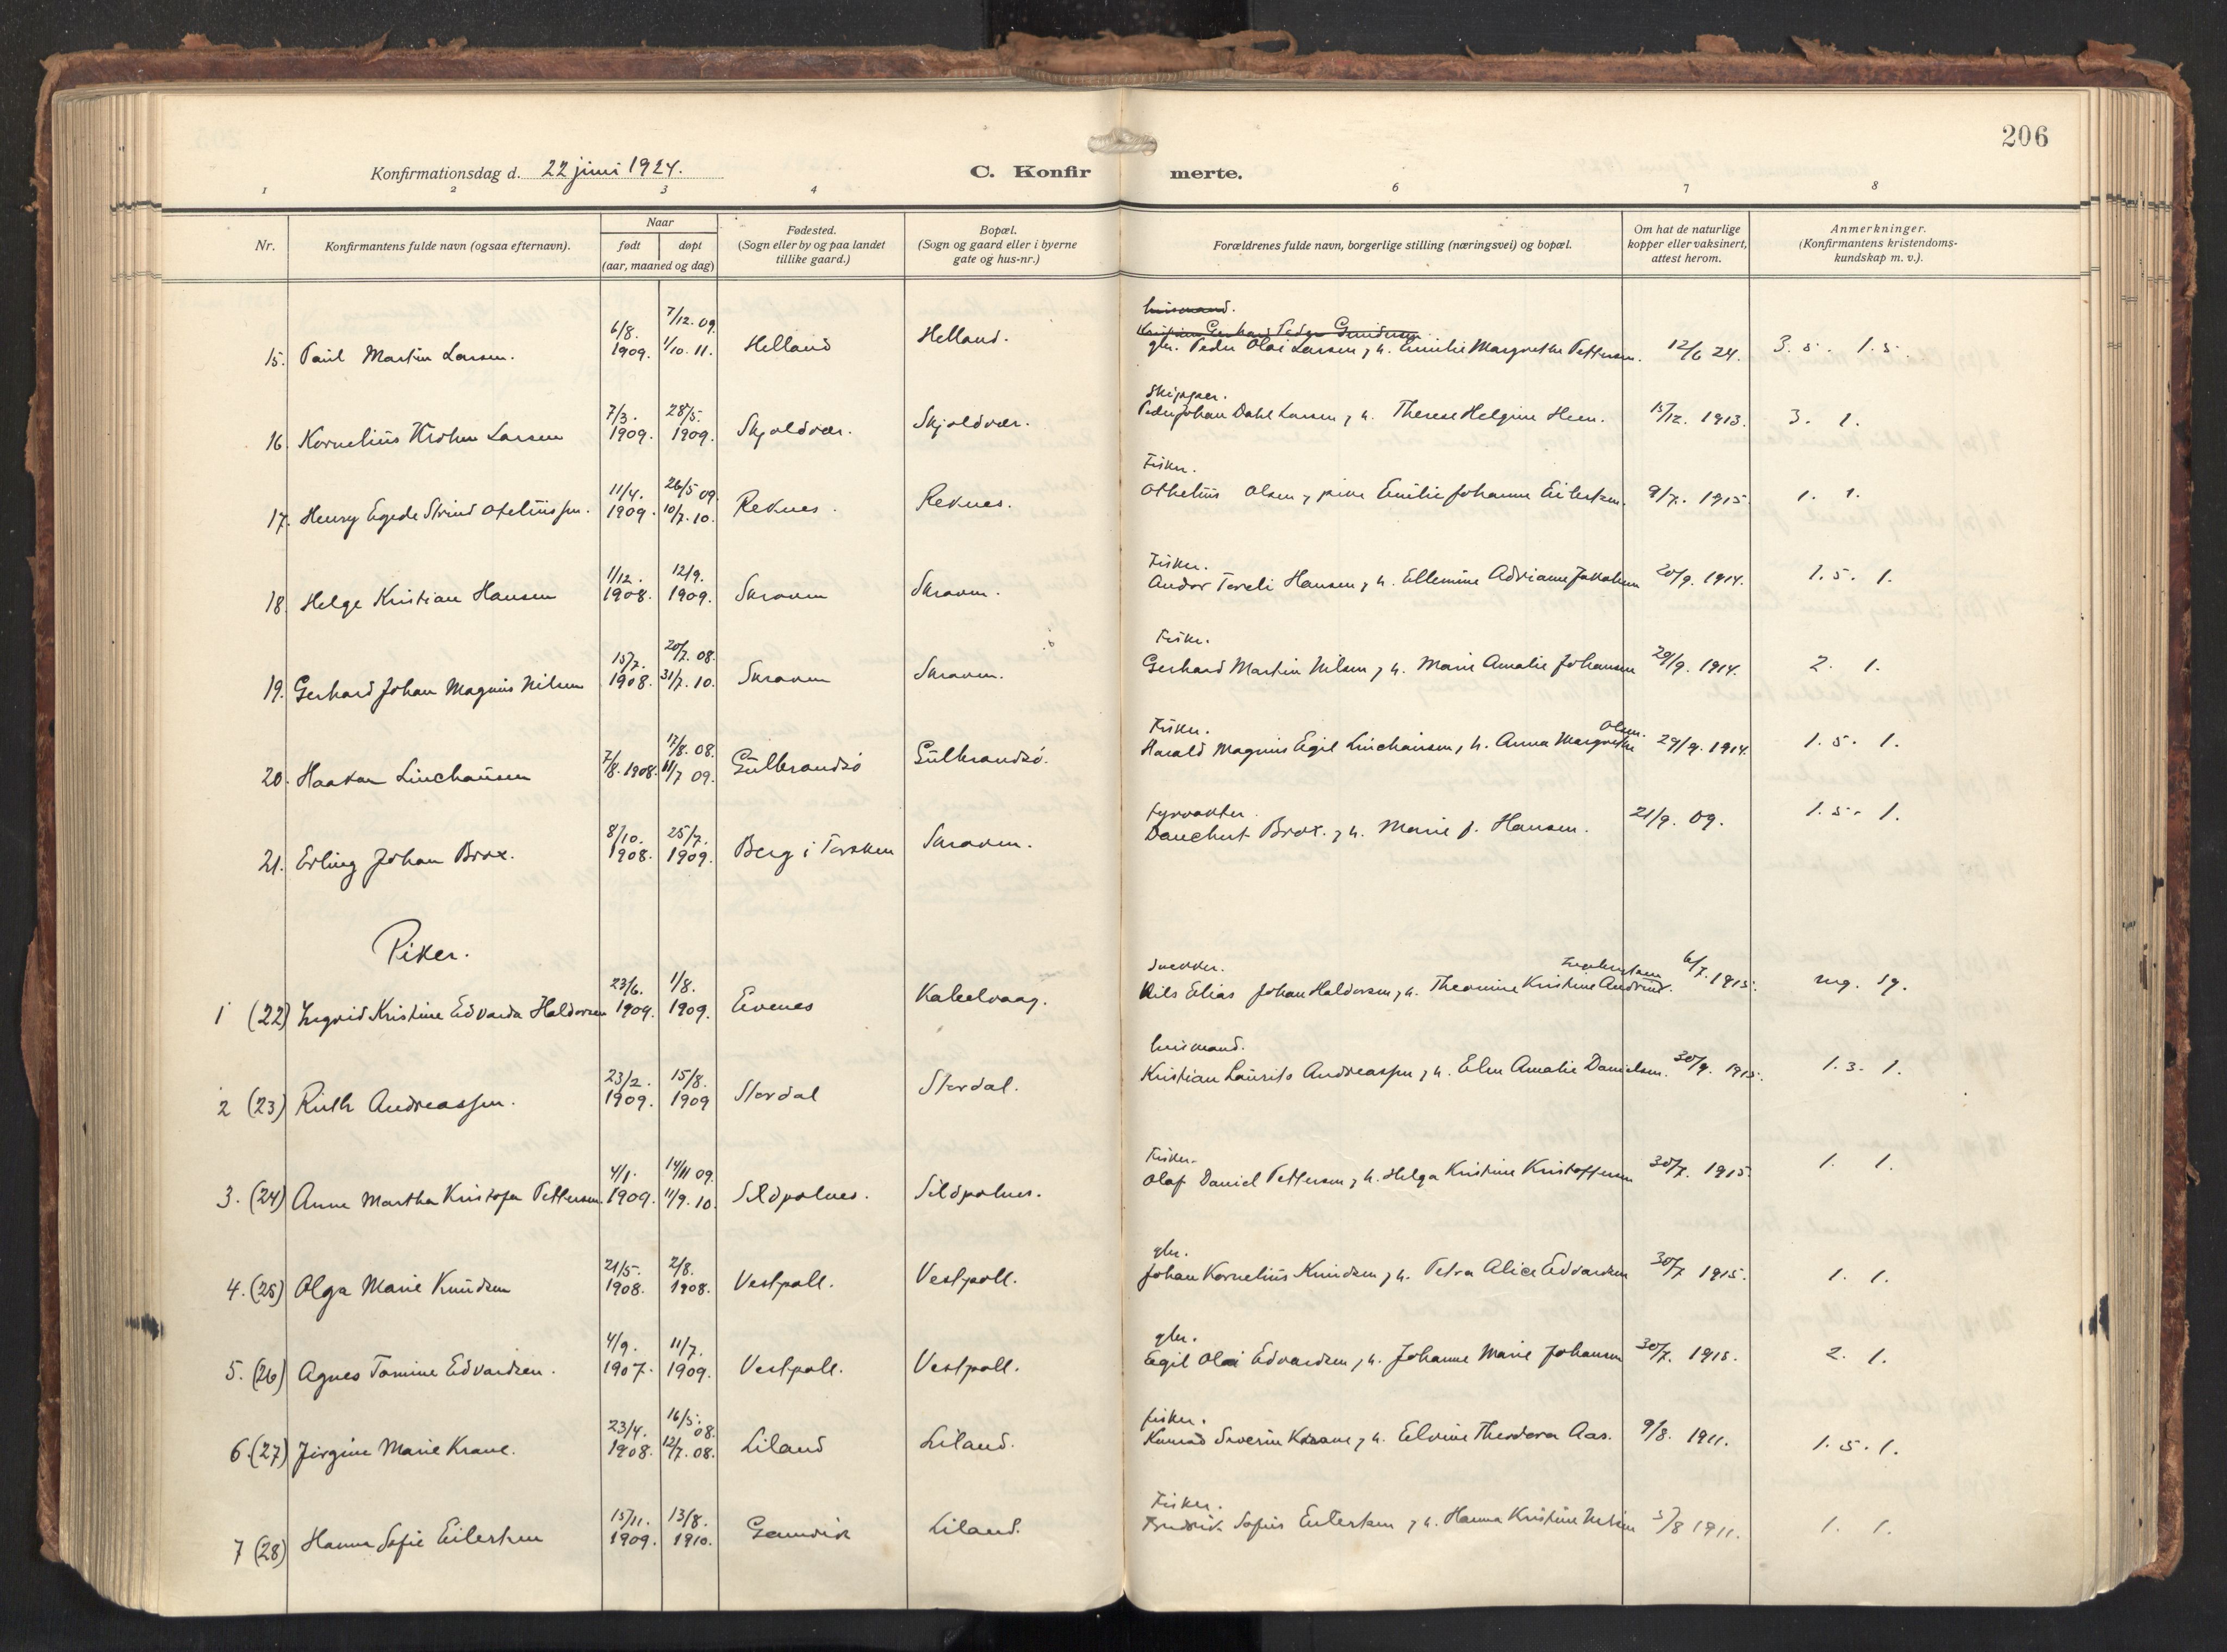 206
Konfirmationsdag d. 22 juni 1924. C. Konfirmerte.
1 2 3 4 6 7 8
Nr. Konfirmantens fulde navn (ogsaa efternavn). Naar født døpt (aar, maaned og dag) Fødested. (Sogn eller by og paa landet tillike gaard.) Bopæl. (Sogn og gaard eller i byerne gate og hus-nr.) Forældrenes fulde navn, borgerlige stilling (næringsvei) og bopæl. Om hat de naturlige kopper eller vaksinert, attest herom. Anmerkninger. (Konfirmantens kristendoms-kundskap m. v.).
15. Paul Martin Larsen. 6/8. 1909. 7/12. 09. 1/10. 11. Helland Helland. gbr. Peder Olai Larsen, h. Emilie Margrethe Pettersen. 12/6 24. 3. 5. 1. 5.
16. Kornelius Krohn Larsen 7/3. 1909. 28/5. 1909. Skjoldvær. Skjoldvær. Skipper. Peder Johan Dahl Larsen, h. Therese Helgine Heen. 15/12. 1913. 3. 1.
17. Henry Egede Strind Oteliussen. 11/4. 1909. 26/5 09. 10/7. 10. Reknes. Reknes. Fisker. Othelius Olsen, pike Emilie Johanne Eilertsen. 9/7. 1915. 1. 1.
18. Helge Kristian Hansen 1/12. 1908. 12/9. 1909. Skraaven Skraaven. Fisker. Andor Toreli Hansen, h. Ellemine Adriane Jakobsen 20/9. 1914. 1. 5. 1.
19. Gerhard Johan Magnus Nilsen 15/7. 1908. 20/7. 08. 31/7. 10. Skraaven Skraaven. Fisker. Gerhard Martin Nilsen, h. Marie Amalie Johansen 29/9. 1914. 2. 1.
20. Haakon Linchausen 7/8. 1908. 17/8. 08. 11/7 09. Gulbrandsö Gulbrandsö. Fisker. Harald Magnus Egil Linchausen, h. Anna Margrethe Olsen. 29/9. 1914. 1. 5. 1.
21. Erling Johan Brox. 8/10. 1908. 25/7. 1909. Berg i Torsken Skraaven. Fyrvakter. Danchert Brox. h. Marie J. Hansen. 21/9. 09. 1. 5. 1.
Piker.
1 (22) Ingrid Kristine Edvarda Haldorsen 23/6. 1909. 1/8. 1909. Evenes Kabelvaag. Snekker. Nils Elias Johan Haldorsen, h. Theomine Kristine 6/7. 1915. mg. sg.
2 (23) Ruth Andreassen. 23/2. 1909. 15/8. 1909 Stordal Stordal. husmand. Kristian Laurits Andreassen, h. Elen Amalie Danielsen. 30/9. 1915. 1. 3. 1.
3. (24) Anne Martha Kristofa Pettersen 4/1. 1909. 14/11 09. 11/9. 10. Sildpolnes. Sildpolnes. Fisker. Olaf Daniel Pettersen, h. Helga Kristine Kristoffersen 30/7. 1915. 1. 1.
4. (25) Olga Marie Knudsen 21/5. 1908. 2/8. 1908. Vestpoll. Vestpoll. gbr. Johan Kornelius Knudsen, h. Petra Alice Edvardsen 30/7 1915. 1. 1.
5. (26) Agnes Tomine Edvardsen. 4/9. 1907. 11/7. 1909. Vestpoll. Vestpoll. gbr. Egil Olai Edvardsen, h. Johanne Marie Johansen 30/7. 1915. 2. 1.
6. (27) Jørgine Marie Krane. 23/4. 1908. 16/5. 08. 12/7. 08. Liland Liland. fisker. Konrad Severin Krane, h. Elvine Theodora Aas. 9/8. 1911. 1. 5. 1.
7 (28) Hanna Sofie Eilertsen 15/11. 1909. 13/8. 1910. Gamvik Liland. Fisker. Fredrik Sofus Eilertsen, h. Hanna Kristine Nilsen 5/8 1911. 1. 1.